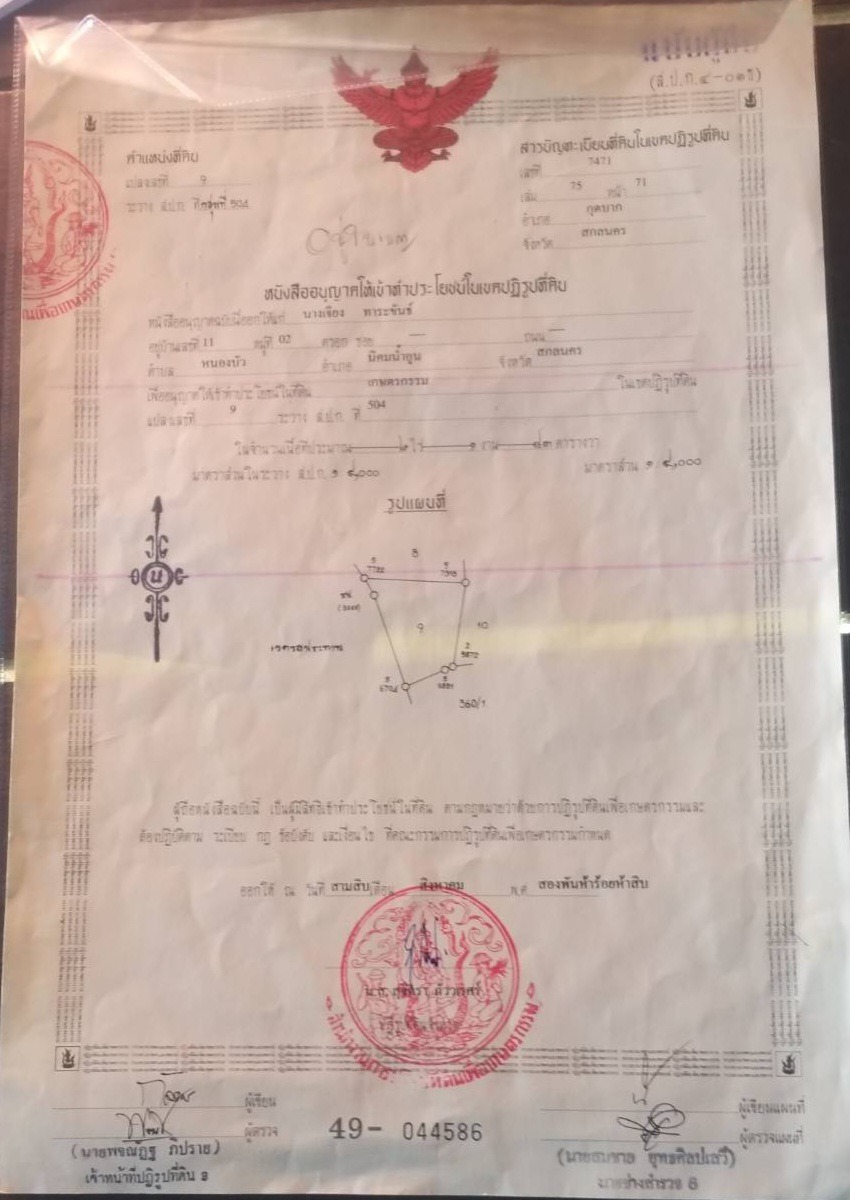 (ส.ป.ก.๔-๐๑ข)
ตำแหน่งที่ดิน
แปลงเลขที่ 9
ระวาง ส.ป.ก. ที่กลุ่มที่ 504
สารบัญทะเบียนที่ดินในเขตปฏิรูปที่ดิน
เลขที่ 7471
เล่ม 75 หน้า 71
อำเภอ กุดบาก
จังหวัด สกลนคร
หนังสืออนุญาตให้เข้าทำประโยชน์ในเขตปฏิรูปที่ดิน
หนังสืออนุญาตฉบับนี้ออกให้แก่ นางเจียง ทาระขันธ์
อยู่บ้านเลขที่ 11 หมู่ที่ 02 ตรอก ซอย — ถนน —
ตำบล หนองบัว อำเภอ นิคมน้ำอูน จังหวัด สกลนคร
เพื่ออนุญาตให้เข้าทำประโยชน์ในที่ดิน เกษตรกรรม ในเขตปฏิรูปที่ดิน
แปลงเลขที่ 9 ระวาง ส.ป.ก. ที่ 504
ในจำนวนเนื้อที่ประมาณ ๒ ไร่ ๑ งาน ๘๓ ตารางวา
มาตราส่วนในระวาง ส.ป.ก. ๑ ๔,๐๐๐ มาตราส่วน ๑ ๔,๐๐๐
รูปแผนที่
น
8
9
10
360/1
ผู้ถือหนังสือฉบับนี้ เป็นผู้มีสิทธิเข้าทำประโยชน์ในที่ดิน ตามกฎหมายว่าด้วยการปฏิรูปที่ดินเพื่อเกษตรกรรมและ
ต้องปฏิบัติตาม ระเบียบ กฎ ข้อบังคับ และเงื่อนไข ที่คณะกรรมการปฏิรูปที่ดินเพื่อเกษตรกรรมกำหนด
ออกให้ ณ วันที่ สามสิบ เดือน สิงหาคม พ.ศ. สองพันห้าร้อยห้าสิบ
ผู้เขียน
ผู้ตรวจ
เจ้าหน้าที่ปฏิรูปที่ดิน
49- 044586
ผู้เขียนแผนที่
ผู้ตรวจแผนที่
นายช่างสำรวจ 6